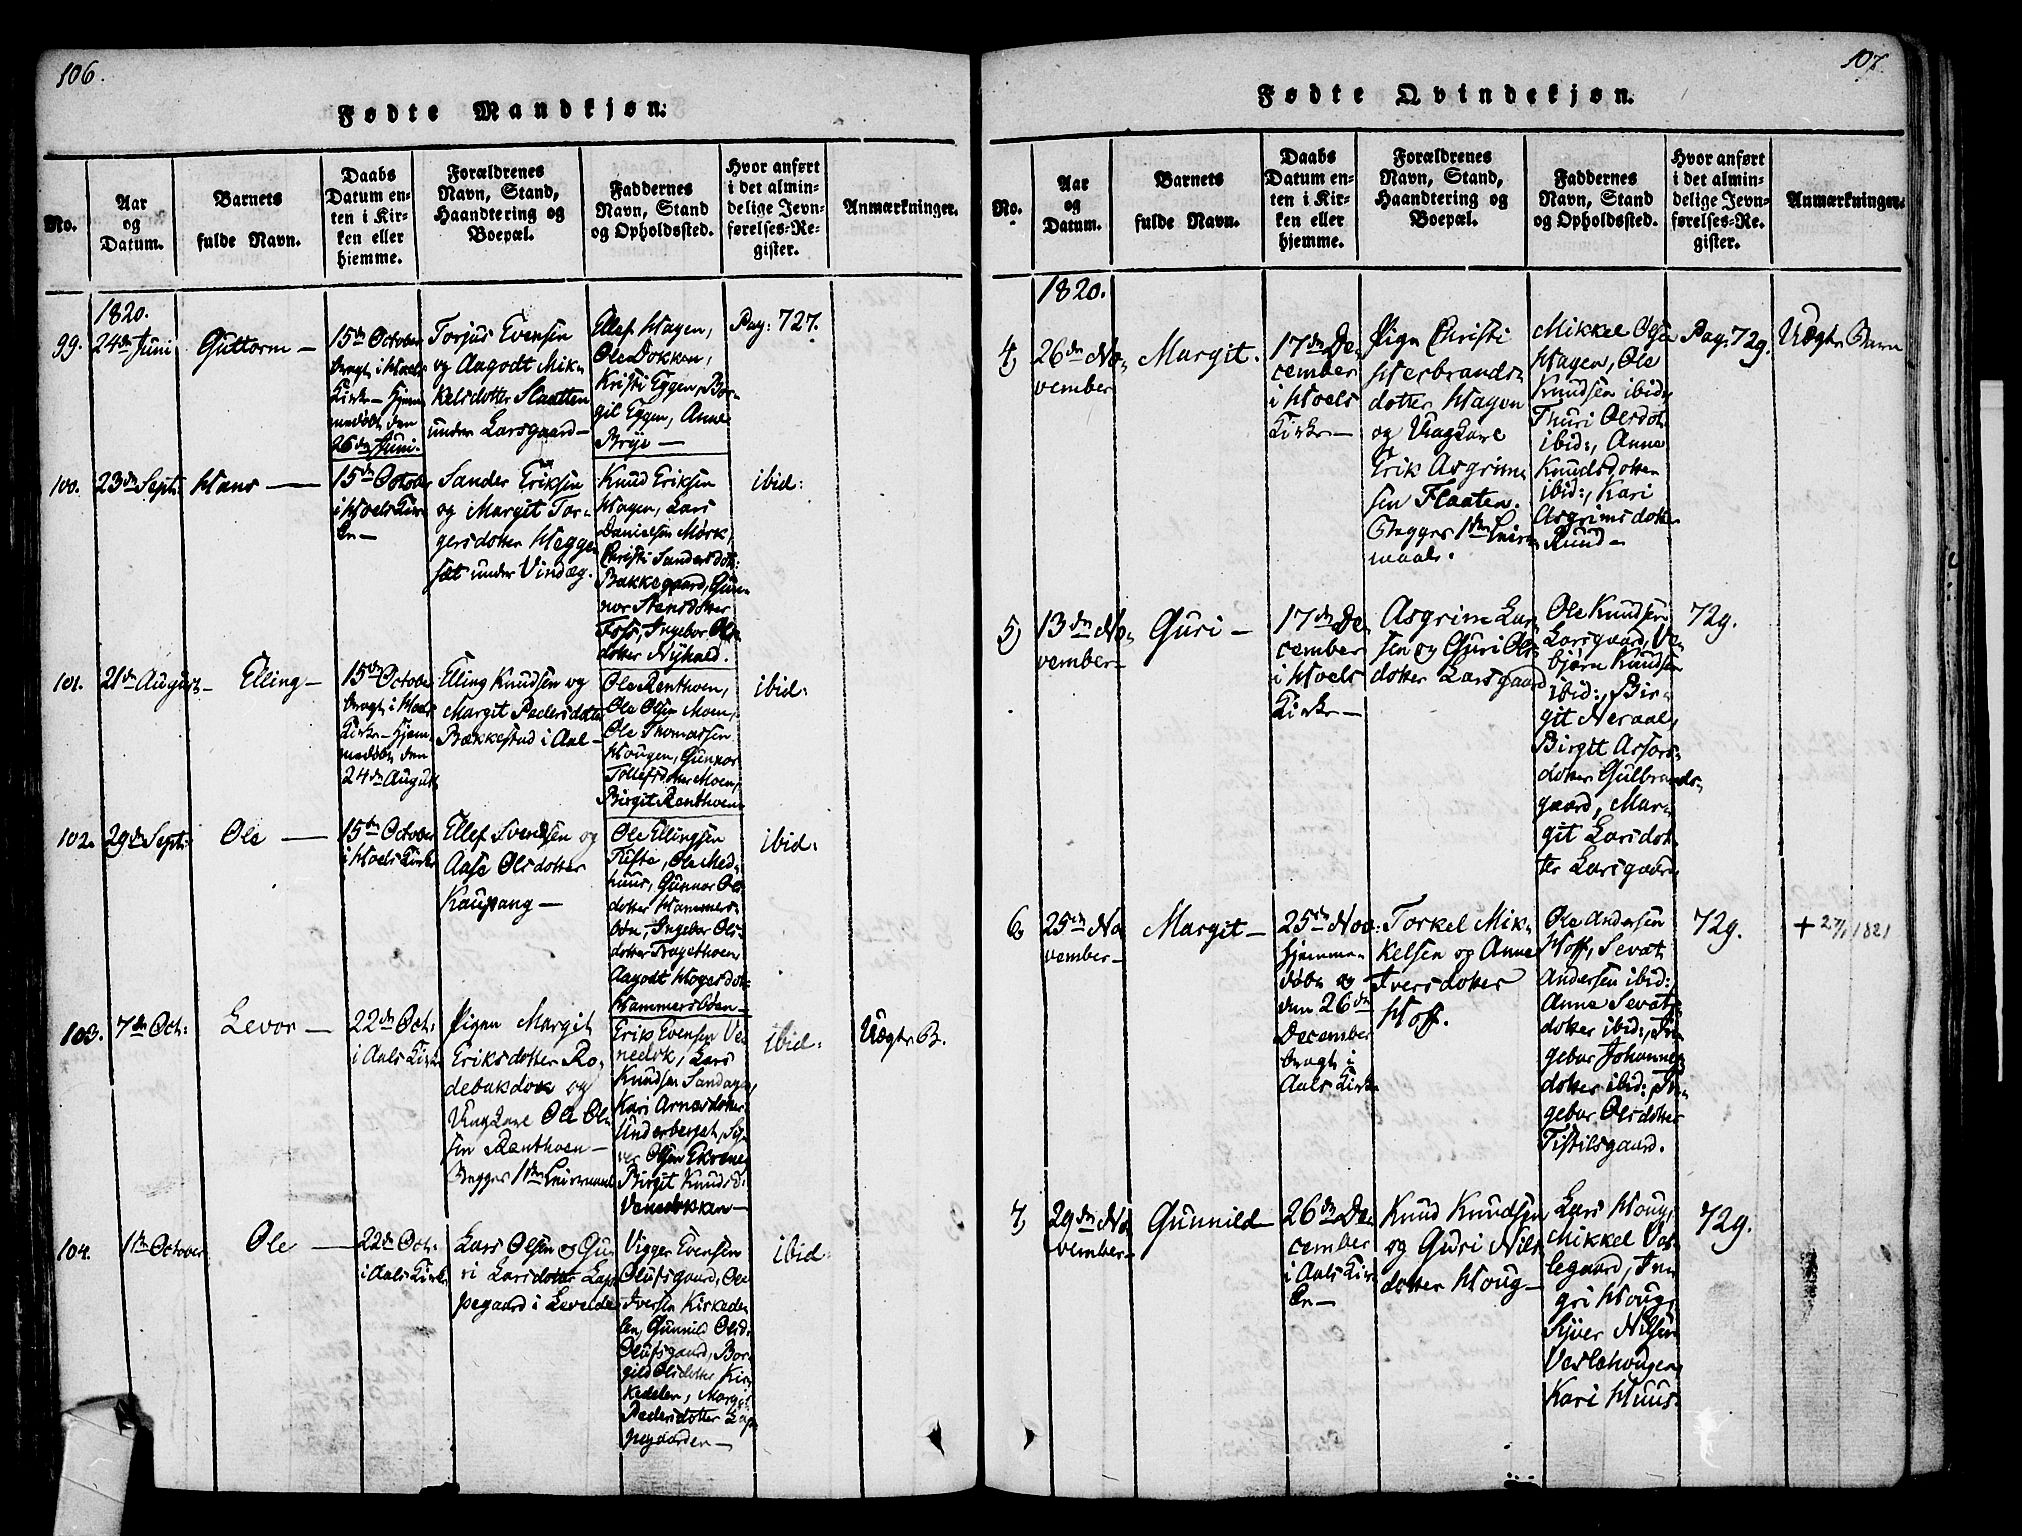 106.
Fødte Mandkjøn.
No.
Aar
og
Datum.
Barnets
fulde Navn.
Daabs
Datum en-
ten i Kir-
ken eller
hjemme.
Forældrenes
Navn, Stand,
Haandtering og
Boepæl.
Faddernes
Navn, Stand
og Opholdssted.
Hvor anført
i det almin-
delige Jevn-
førelses-Re-
gister.
Anmærkninger.
1820.
99.
24de Juni
Guttorm —
15de October
bragt i Hoels
Kirke – Hjem-
medøbt den
26de Juni.
Torjus Evensen
og Aagodt Mik-
kelsdotter Slaatten
under Larsgaard —
Ellef Hagen,
Ole Dokken,
Kristi Eggen, Bor-
gil Eggen, Anne
Brye —
Pag: 727.
100.
23de Sept:
Hans —
15de October
i Hoels Kir-
ke —
Sander Eriksen
og Margit Tor-
gersdotter Hegge-
sæt under Vindæg.
Knud Eriksen
Hagen, Lars
Danielsen Mørk,
Christi Sandersdotr:
Bakkegaard, Gun-
nor Stensdotter
Foss, Ingebor Ols-
dotter Nyhued.
ibid:
101.
21de August —
Elling —
15de October
bragt i Hoels
Kirke – Hjem-
medøbt den
24de August
Elling Knudsen og
Margit Pedersdotter
Bækkestad i Aal —
Ole Renthoen,
Ole Olsen Moen,
Ole Thomassen
Hougen, Gunnor
Tollefsdotter Moen,
Birgit Renthoen
ibid:
102.
29de Sept:
Ole —
15de October
i Hoels Kirke
Ellef Svendsen og
Aase Olsdotter
Kaupang —
Ole Ellingsen
Tufte, Ole Med-
huus, Gunnor Ols-
dotter Hammers-
bøn, Ingebor Ols-
dotter Tragethoen,
Aagodt Hogersdotr
Hammersbøen —
ibid:
103.
7de Oct:
Levor —
22de Oct:
i Aals Kirke
Pigen Margit
Eriksdotter Ro-
debakdok og
Ungkarl Ole Ol-
sen Renthoen —
Begges 1ste Leiermaal
Erik Evensen Ve-
nedok, Lars
Knudsen Sandager,
Kari Arnesdotter
Underberget,
Olsen Ekrene,
Birgit Knudsd:
Venedokken —
ibid:
Uægte B.
104.
1ste October
Ole —
22de Oct:
i Aals Kirke
Lars Olsen og Gu-
ri Larsdotter Lap-
pegaard i Levelde
Vigger Evensen
Olufsgaard, Ole
Iversen Kirkede-
len, Gunnild Olsd:
Olufsgaard, Bor-
gild Olsdotter Kir-
kedelen, Margit
Pedersdotter Lap-
pegaarden —
ibid:
107.
Fødte Qvindekjøn.
No.
Aar
og
Datum.
Barnets
fulde Navn.
Daabs
Datum en-
ten i Kir-
ken eller
hjemme.
Forældrenes
Navn, Stand,
Haandtering og
Boepæl.
Faddernes
Navn, Stand
og Opholdssted.
Hvor anført
i det almin-
delige Jevn-
førelses-Re-
gister.
Anmærkninger.
1820.
4)
26de No-
vember
Margit.
17de De-
cember
i Hoels
Kirke —
Pigen Christi
Herbrands-
dotter Hagen
og Ungkarl
Erik Asgrim-
sen Flaaten.
Begges 1ste Leier-
maal.
Mikkel Olsen
Hagen, Ole
Knudsen ibid:,
Thuri Olsdotr
ibid:, Anne
Knudsdotter
ibid:, Kari
Asgrimsdotter
Ruud —
Pag: 729.
Uægte Barn
5)
13de No-
vember —
Guri —
17de De-
cember
i Hoels
Kirke —
Asgrim Lar-
sen og Guri Ols-
dotter Larsgaard
Ole Knudsen
Larsgaard, Ve-
bjørn Knudsen
ibid:, Bir-
git Neraal,
Birgit Assors-
dotter Gulbrands-
gaard, Mar-
git Larsdot-
ter Larsgaard
729.
6)
25de No-
vember —
Margit —
25de Nov:
Hjemme-
døbt og
den 26de
December
bragt i
Aals Kirke
Torkel Mik-
kelsen og Anne
Iversdotter
Hoff.
Ole Andersen
Hoff, Sevat
Andersen ibid:,
Anne Sevats-
dotter ibid:, In-
gebor Johannes-
dotter ibid:, In-
gebor Olsdotter
Tistilsgaard.
729.
+ 27/1 1821
7)
29de No-
vember —
Gunnild —
26de De-
cember
i Aals Kir-
ke —
Knud Knudsen
og Guri Nils-
dotter Houg —
Lars Houg,
Mikkel Ves-
legaard, In-
gri Houg,
Syver Nilsen
Veslehougen,
Kari Huus.
729.